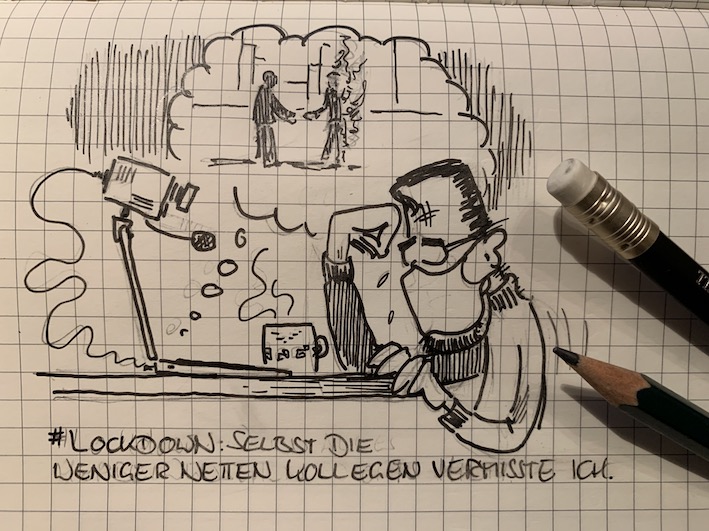 #LOCKDOWN: SELBST DIE
WENIGER NETTEN KOLLEGEN VERMISSTE ICH.